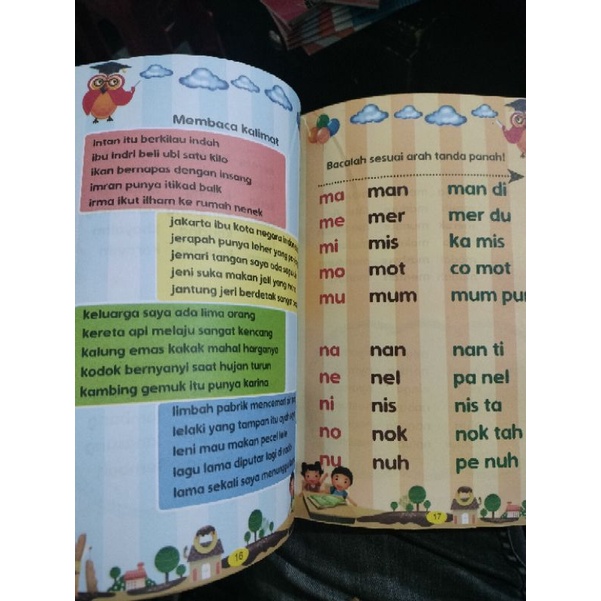 Membaca kalimat
intan itu berkilau indah
ibu indri beli ubi satu kilo
ikan bernapas dengan insang
imran punya itikad baik
irma ikut ilham ke rumah nenek
jakarta ibu kota negara
jerapah punya leher yang
jemari tangan saya ada
jeni suka makan jeli yang
jantung jeri berdetak sangat
keluarga saya ada lima orang
kereta api melaju sangat kencang
kalung emas kakak mahal harganya
kodok bernyanyi saat hujan turun
kambing gemuk itu punya karina
limbah pabrik mencemari
lelaki yang tampan itu
leni mau makan pecel lele
lagu lama diputar lagi di
lama sekali saya menunggu
16
Bacalah sesuai arah tanda panah!
ma man man di
me mer mer du
mi mis ka mis
mo mot co mot
mu mum mum pu
na nan nan ti
ne nel pa nel
ni nis nis ta
no nok nok tah
nu nuh pe nuh
17